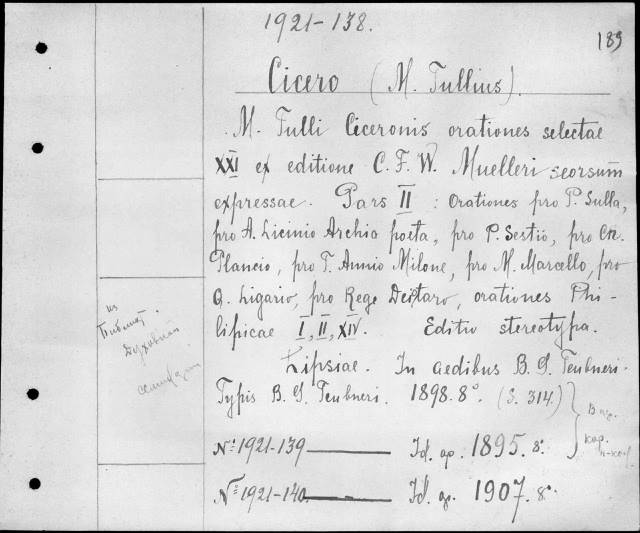 1921-138.
183
Cicero (M. Tullius).
M. Tulli Ciceronis orationes selectae
XXI ex editione C. F. W. Muelleri seorsum
expressae. Pars II : Orationes pro P. Sulla,
pro A. Licinio Archia poeta, pro P. Sestio, pro Cn.
Plancio, pro T. Annio Milone, pro M. Marcello, pro
Q. Ligario, pro Rege Deiotaro, orationes Phi-
lipicae I, II, XIV. Editio stereotypa.
Lipsiae. In aedibus B. G. Teubneri.
Typis B. G. Teubneri. 1898. 8°. (S. 314.)
№: 1921-139 Id. op. 1895. 8°.
№: 1921-140 Id. op. 1907. 8°.
из
Библиот.
Духовной
кар.